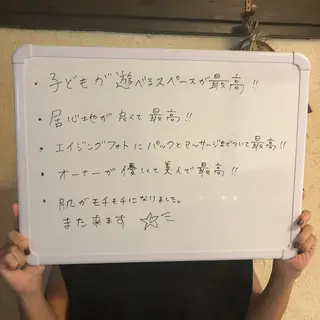 ・子どもが遊べるスペースが最高!!
・居心地が良くて最高!!
・エイジングフォトにパックとマッサージまでついて最高!!
・オーナーが優しくて美人で最高!!
・肌がモチモチになりました。
また来ます ☆